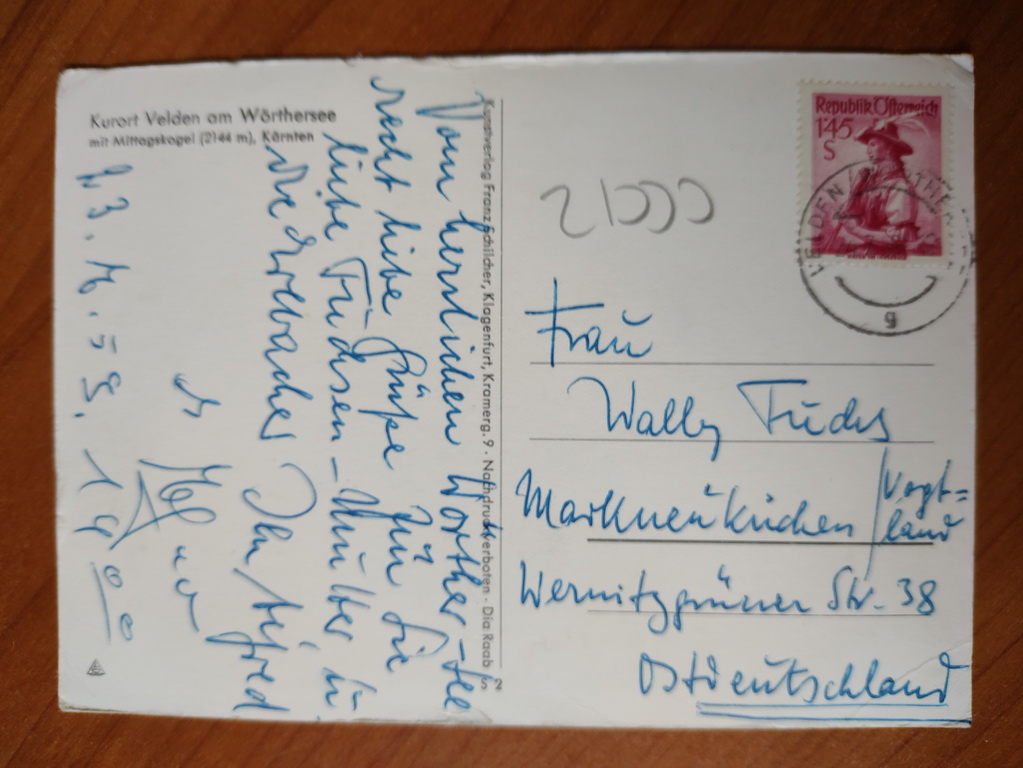 Kurort Velden am Wörthersee
mit Mittagskogel (2144 m), Kärnten
Vom herrlichen Wörther-See
recht liebe Grüße für Sie
liebe Füchsen-Mutter in
Ihr Alfred
u.
23. 5. 1400
Kunstverlag Franz Schilcher, Klagenfurt, Kramerg. 9 · Nachdruck verboten · Dia Raab
Republik Österreich
145
S
VELDEN
g
Frau
Wally Fuchs
Markneukirchen /Vogt=
land
Wernitzgrüner Str. 38
Ostdeutschland